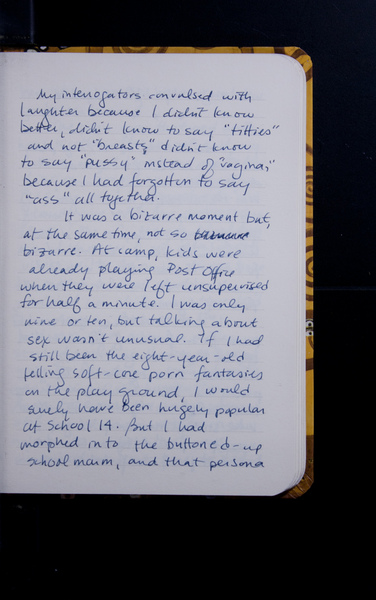 My interrogators convulsed with
laughter because I didn't know
better, didn't know to say "titties"
and not "breasts," didn't know
to say "pussy" instead of "vagina,"
because I had forgotten to say
"ass" all together.
It was a bizarre moment but,
at the same time, not so
bizarre. At camp, kids were
already playing Post Office
when they were left unsupervised
for half a minute. I was only
nine or ten, but talking about
sex wasn't unusual. If I had
still been the eight-year-old
telling soft-core porn fantasies
on the play ground, I would
surely have been hugely popular
at School 14. But I had
morphed into the buttoned-up
school marm, and that persona